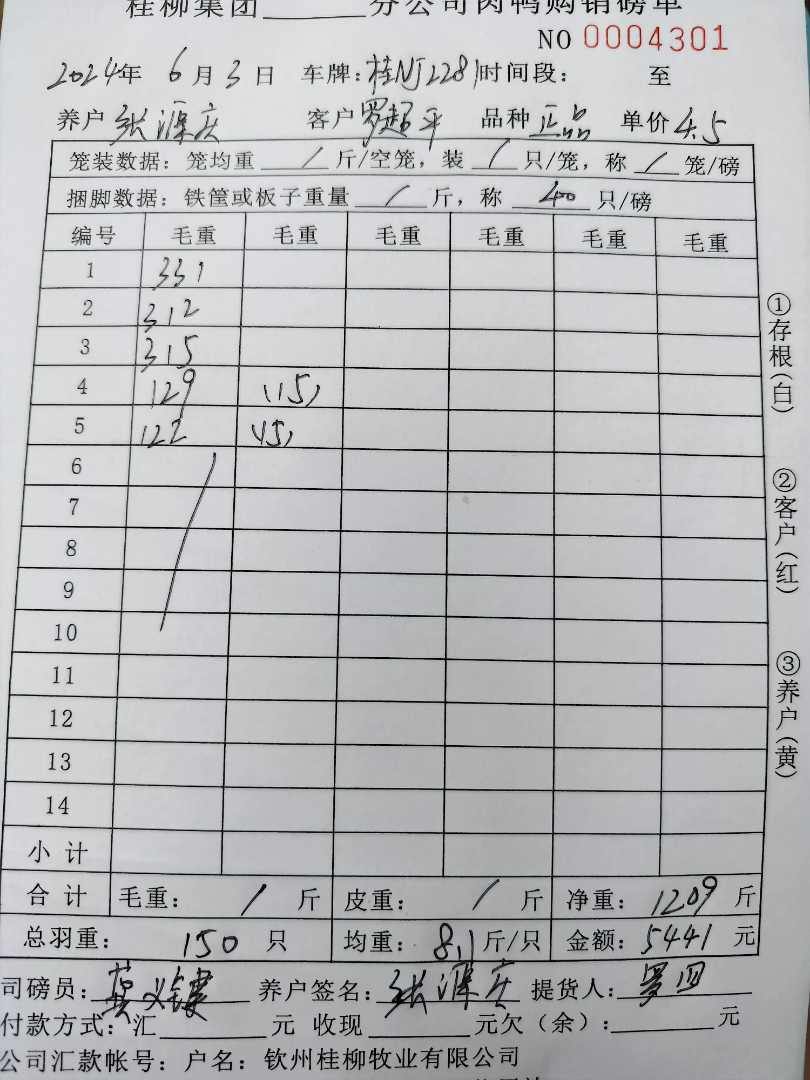 桂柳集团______分公司肉鸭购销磅单
NO 0004301
2024年 6月3日 车牌:桂NJ2281时间段: 至
养户 张源庆 客户罗超平 品种 正品 单价4.5
笼装数据: 笼均重 / 斤/空笼, 装 / 只/笼, 称 / 笼/磅
捆脚数据: 铁筐或板子重量 / 斤, 称 40 只/磅
编号 毛重 毛重 毛重 毛重 毛重 毛重
1 331
2 312
3 315
4 129 (15)
5 122 (15)
6
7
8
9
10
11
12
13
14
小计
合计 毛重: / 斤 皮重: / 斤 净重: 1209 斤
总羽重: 150 只 均重: 8.1 斤/只 金额: 5441 元
司磅员: 养户签名: 张源庆 提货人: 罗四
付款方式: 汇______元 收现______元欠(余):______元
公司汇款帐号: 户名: 钦州桂柳牧业有限公司
①存根(白)
②客户(红)
③养户(黄)